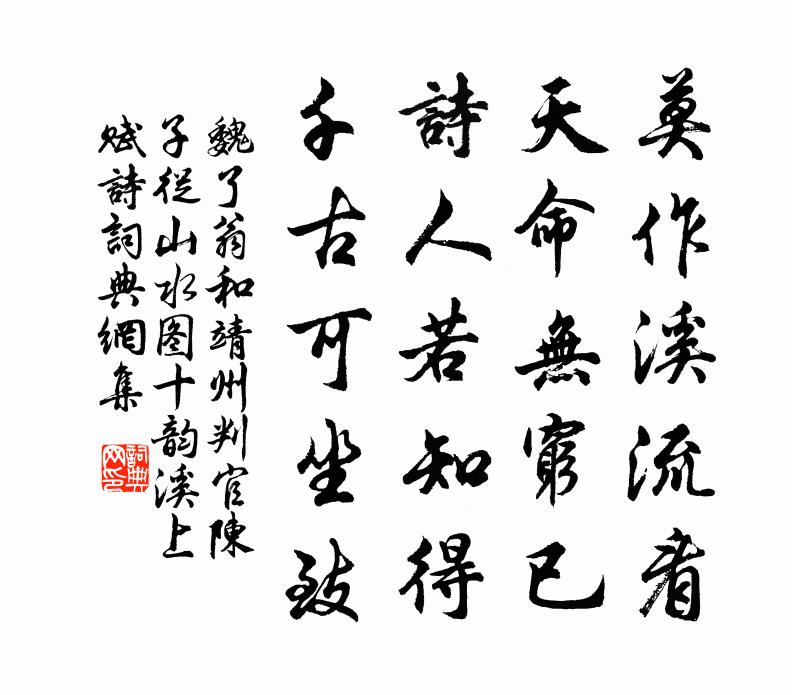 莫作溪流看
天命無窮已
詩人若知得
千古可坐致
魏了翁和靖州判官陳
子從山水图十韵溪上
赋詩詞典網集
詞典网印